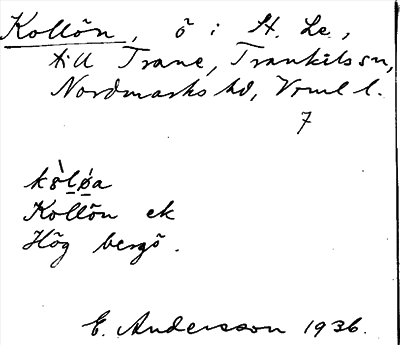 Kollön, ö i St. Le,
till Trane, Trankils sn,
Nordmarks hd, Vrml l.
7
kòlǿa
Kollön ek
Hög bergö.
E. Andersson 1936.